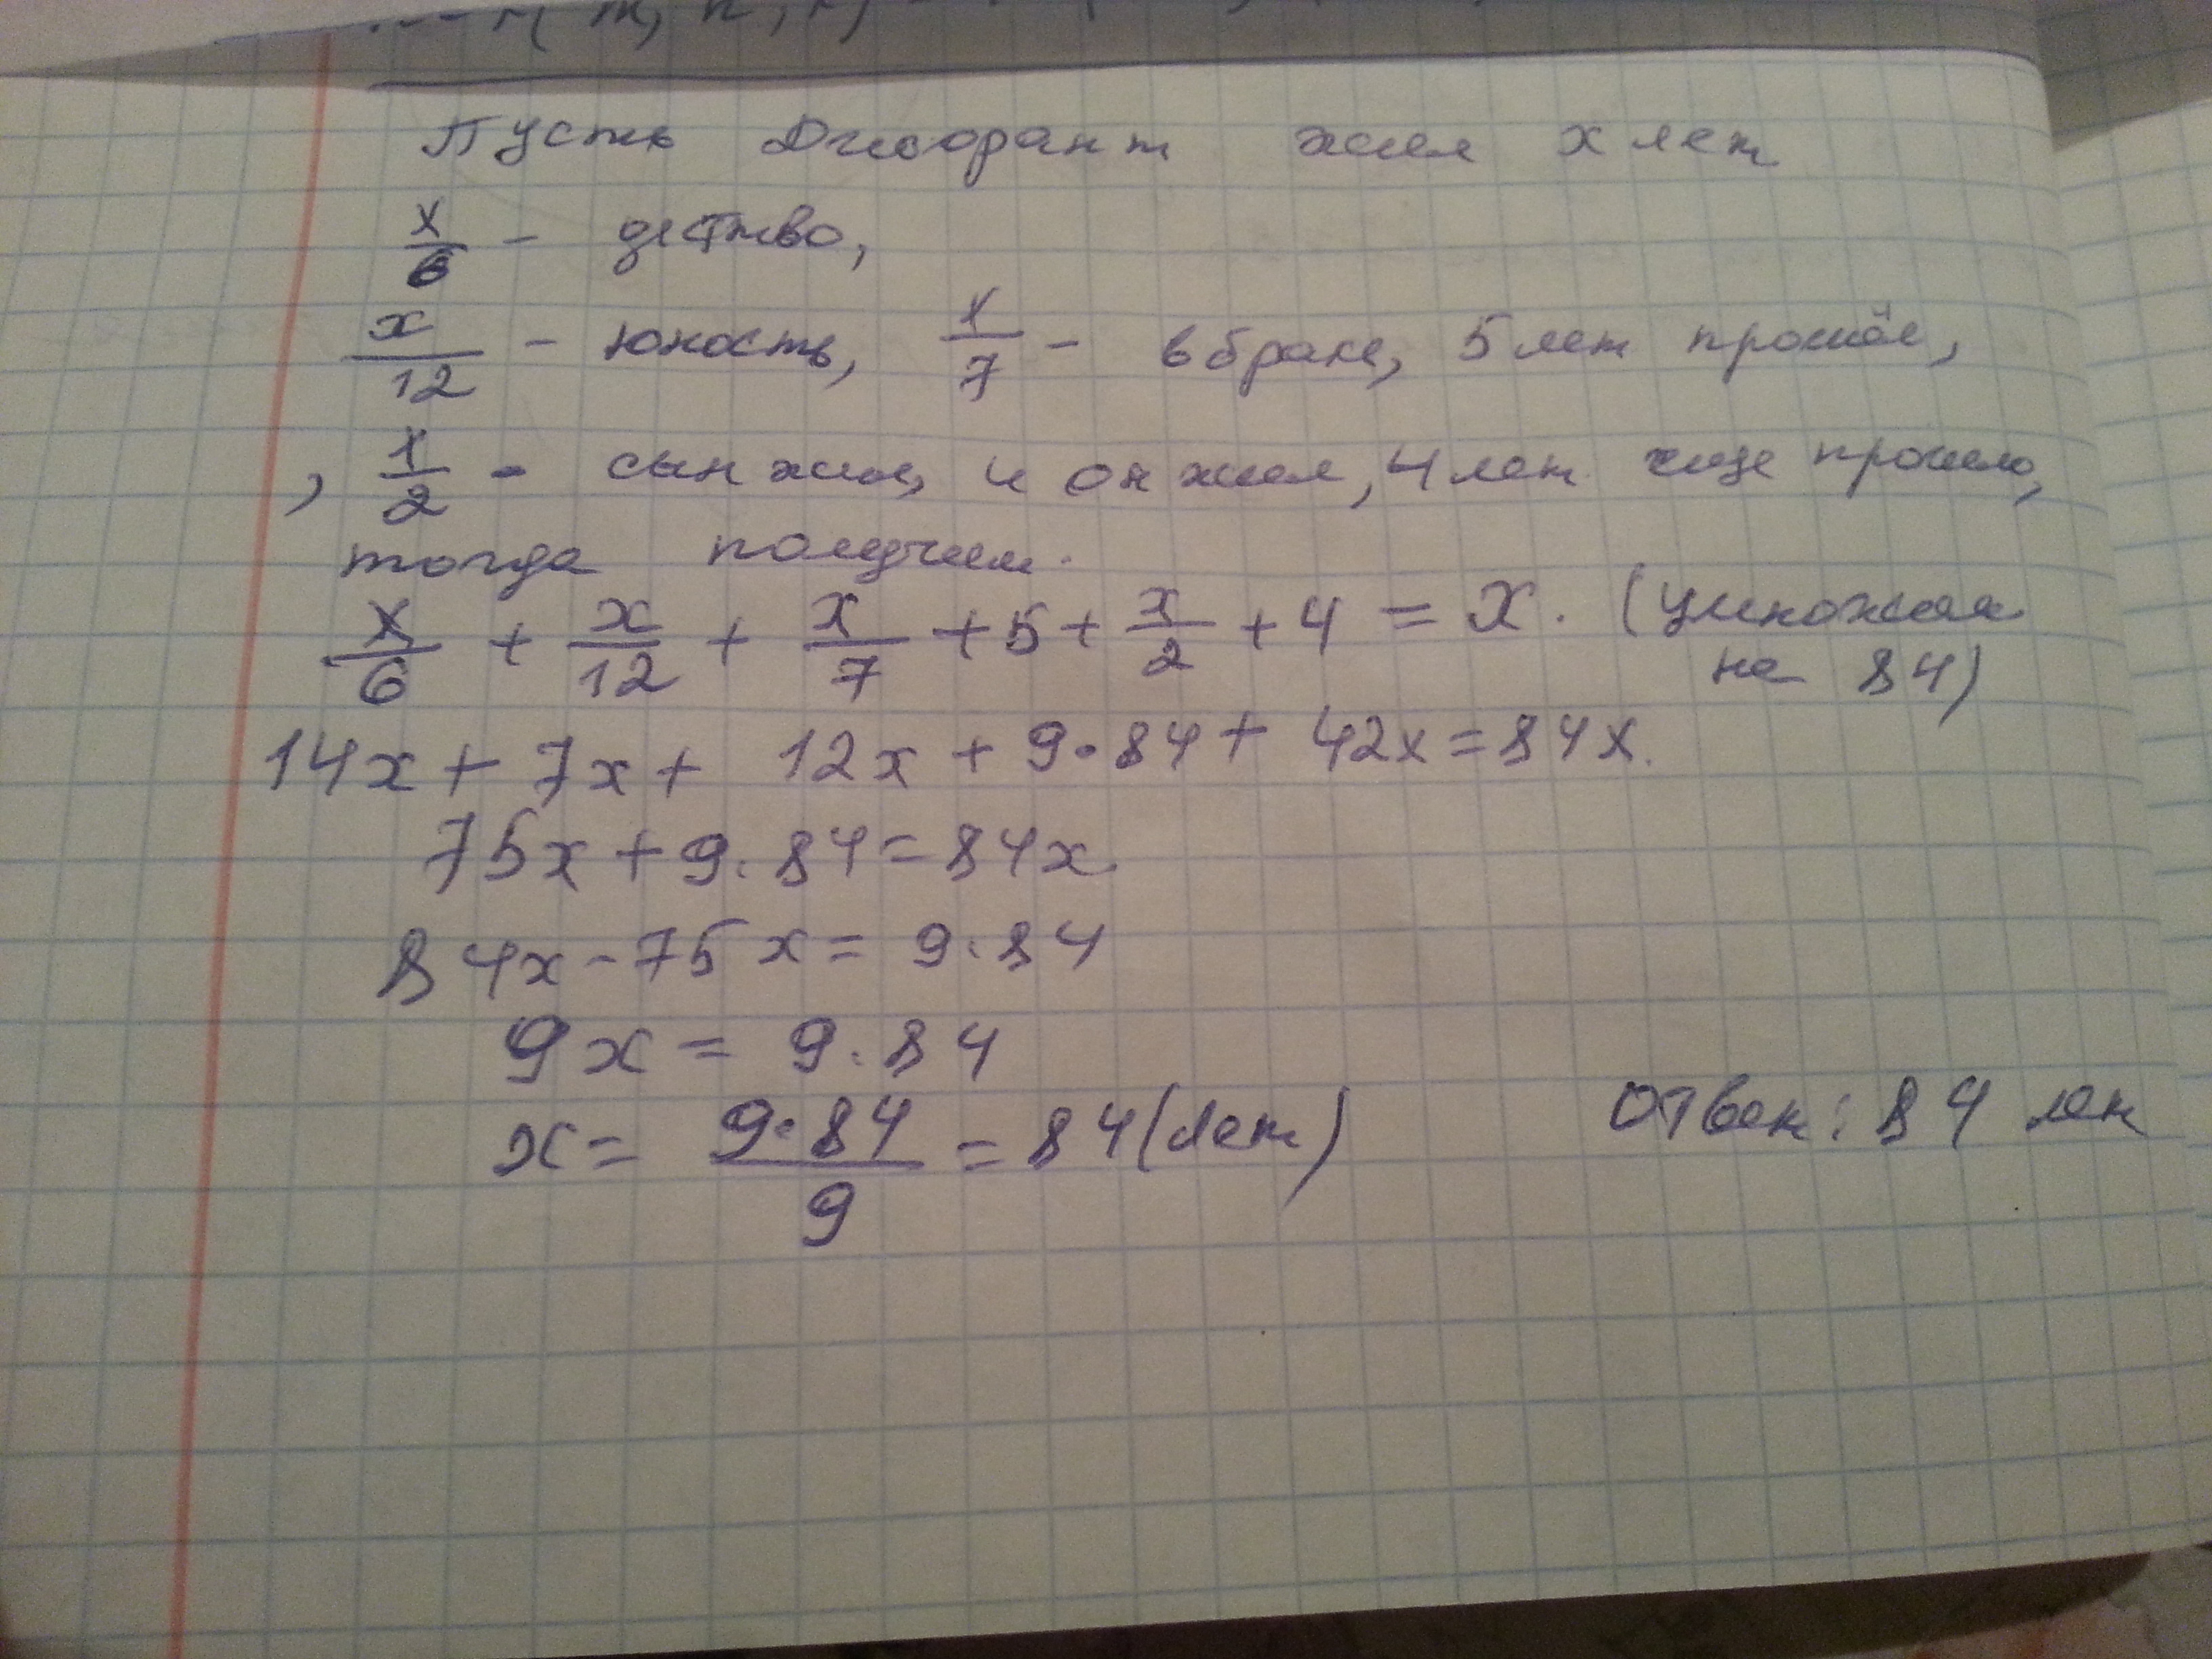 Пусть Диофант жил x лет
x/6 - детство,
x/12 - юность, x/7 - в браке, 5 лет прошло,
, x/2 - сын жил, и он жил, 4 лет еще прошло,
тогда получим.
x/6 + x/12 + x/7 + 5 + x/2 + 4 = x. (умножая
на 84)
14x + 7x + 12x + 9·84 + 42x = 84x.
75x + 9·84 = 84x
84x - 75x = 9·84
9x = 9·84
x = 9·84/9 = 84 (лет)
Ответ: 84 лет